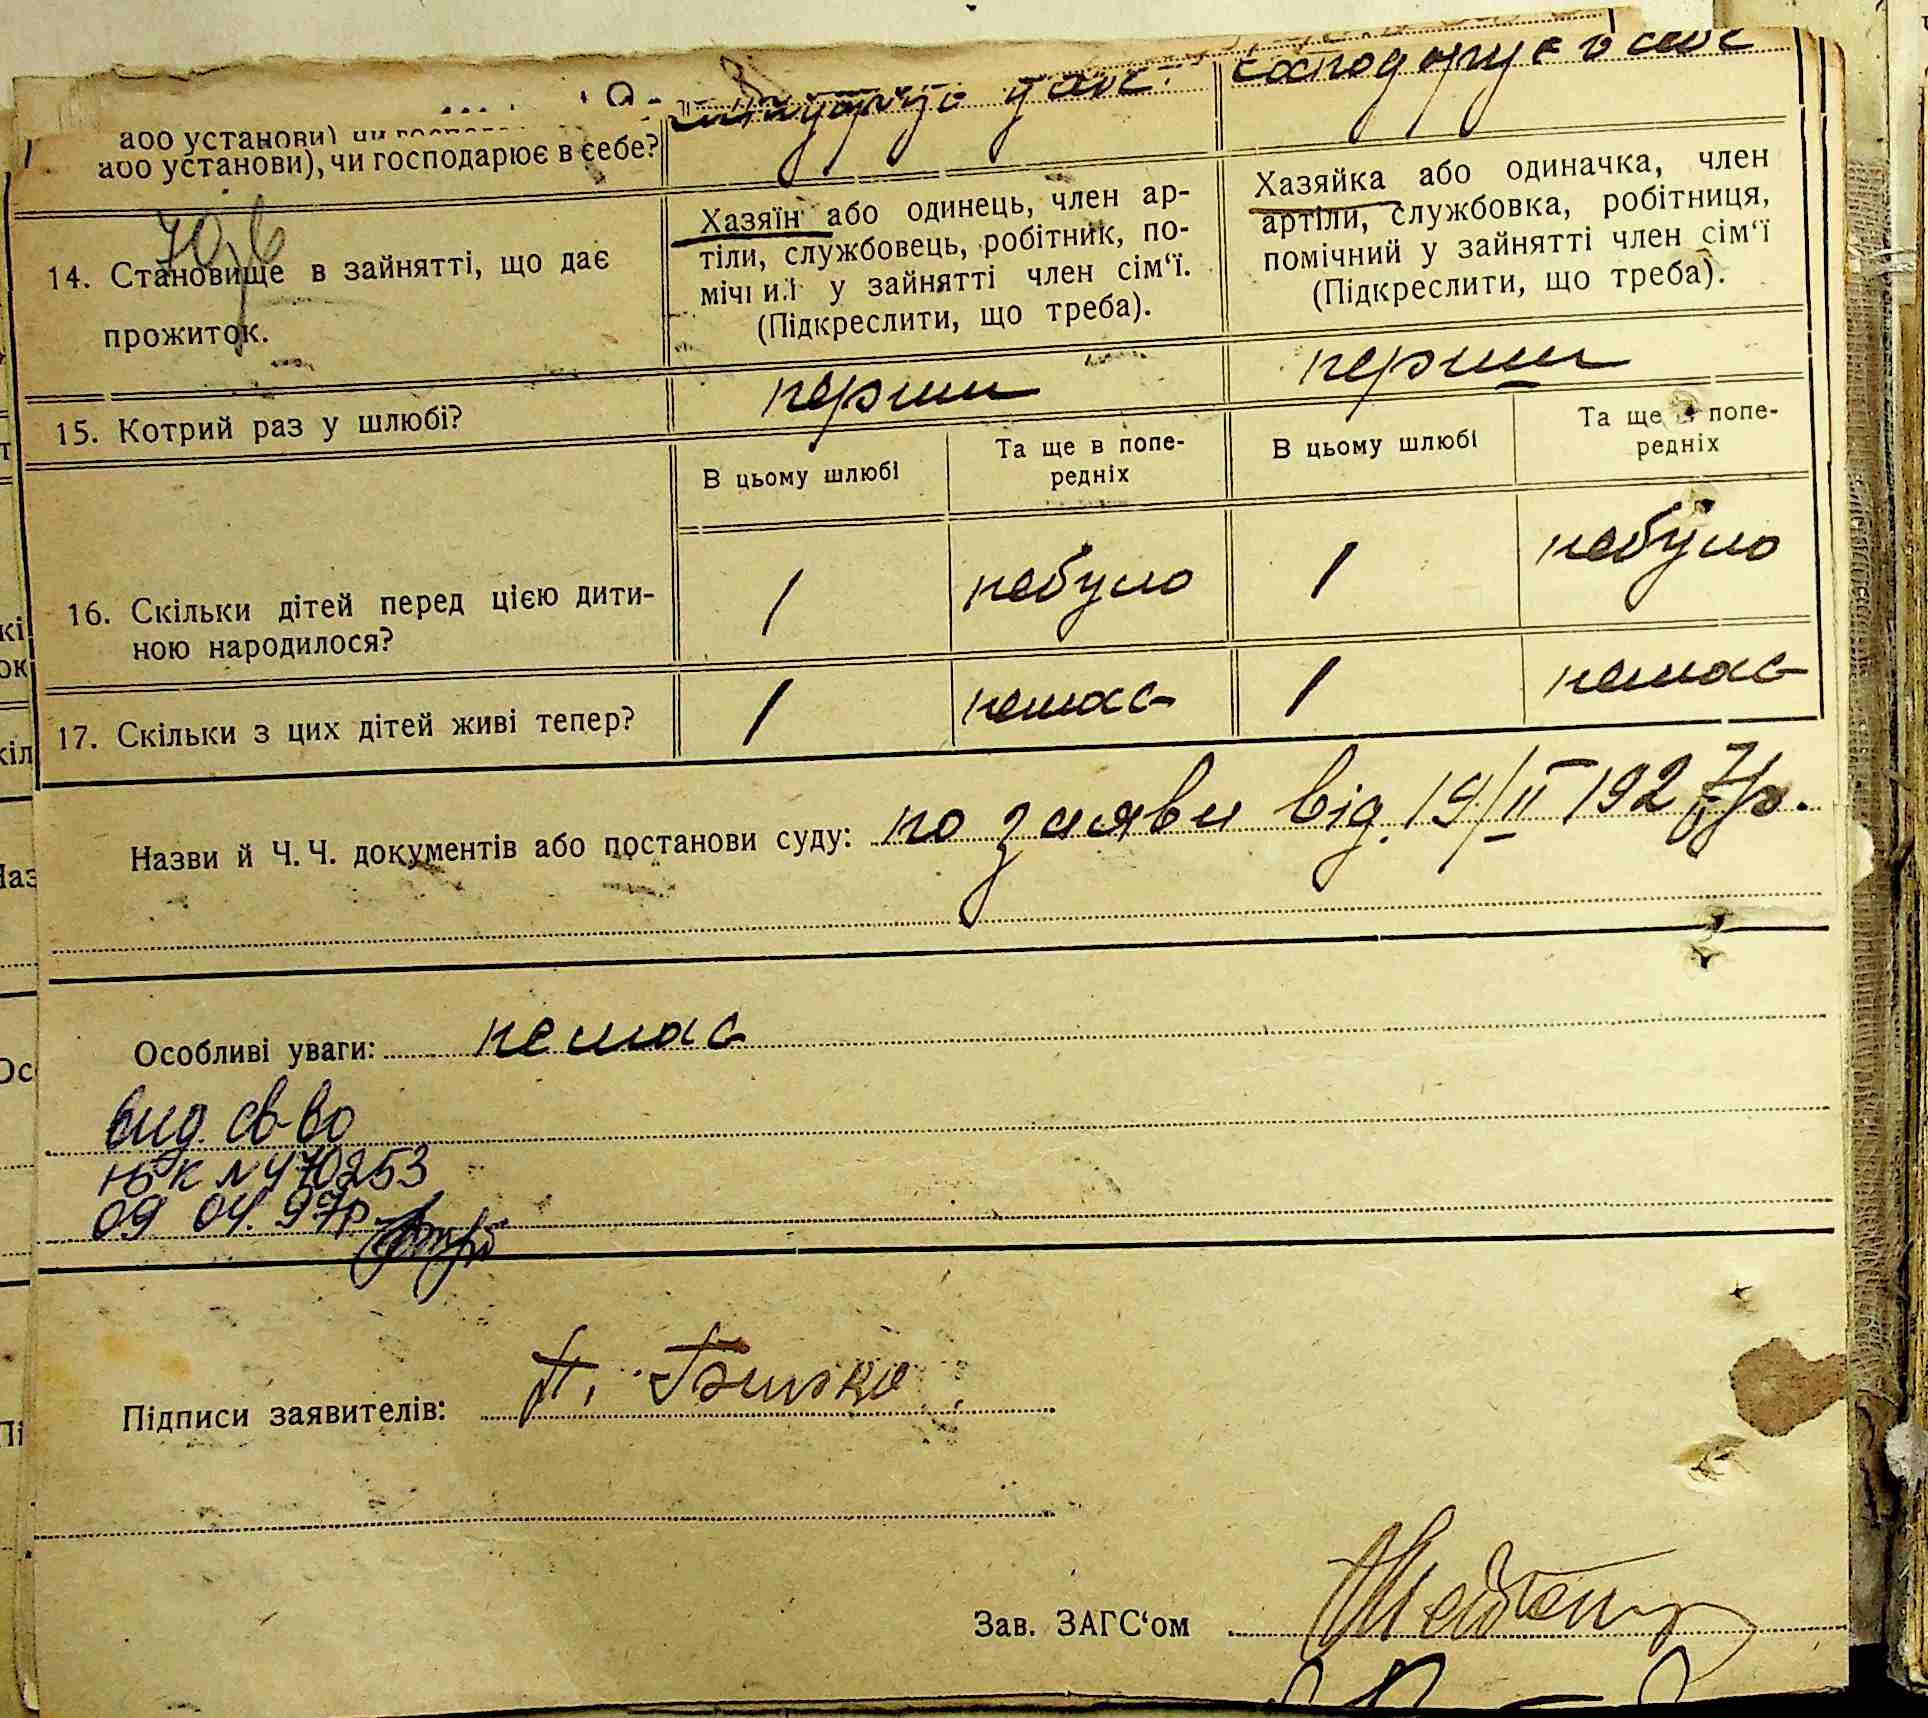 або установи), чи господарює в себе?
господарує в себе
14. Становище в зайнятті, що дає
прожиток.
Хазяїн або одинець, член ар-
тіли, службовець, робітник, по-
мічний у зайнятті член сім‘ї.
(Підкреслити, що треба).
Хазяйка або одиначка, член
артіли, службовка, робітниця,
помічний у зайнятті член сім‘ї
(Підкреслити, що треба).
15. Котрий раз у шлюбі?
перший
перший
В цьому шлюбі
Та ще в попе-
редніх
В цьому шлюбі
Та ще в попе-
редніх
16. Скільки дітей перед цією дити-
ною народилося?
1
небуло
1
небуло
17. Скільки з цих дітей живі тепер?
1
немає
1
немає
Назви й Ч. Ч. документів або постанови суду: по заяви від 19/II 1927 р.
Особливі уваги: немає
вид. св-во
№ 470253
09 04. 97р
Підписи заявителів:
Зав. ЗАГС‘ом